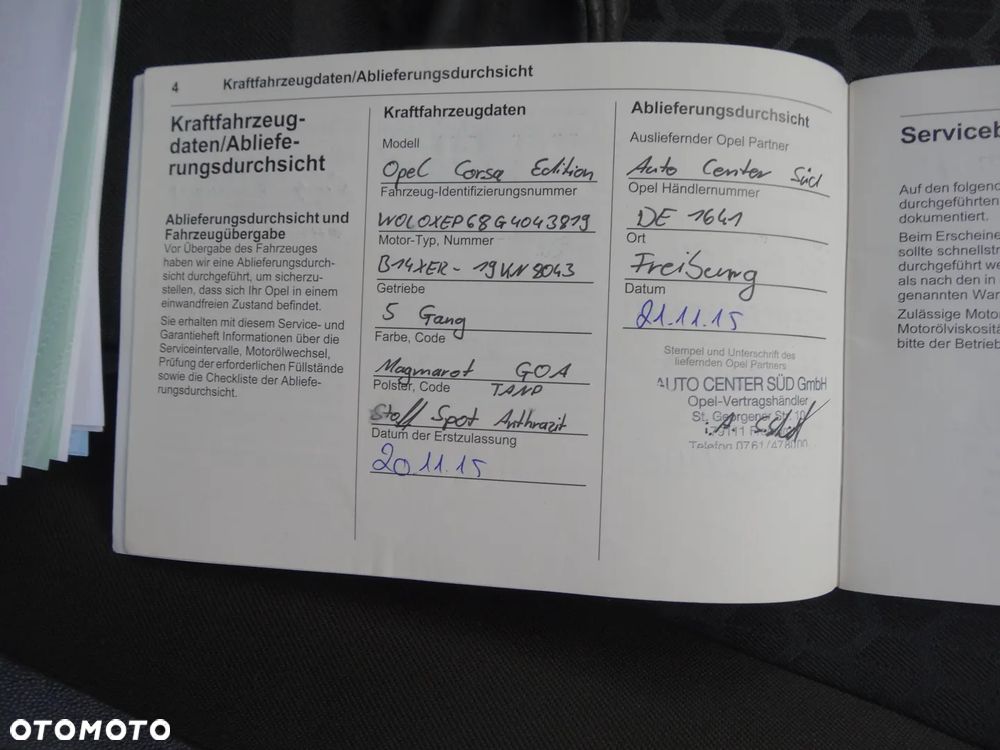 4
Kraftfahrzeugdaten/Ablieferungsdurchsicht
Kraftfahrzeug-
daten/Abliefe-
rungsdurchsicht
Ablieferungsdurchsicht und
Fahrzeugübergabe
Vor Übergabe des Fahrzeuges
haben wir eine Ablieferungsdurch-
sicht durchgeführt, um sicherzu-
stellen, dass sich Ihr Opel in einem
einwandfreien Zustand befindet.
Sie erhalten mit diesem Service- und
Garantieheft Informationen über die
Serviceintervalle, Motorölwechsel,
Prüfung der erforderlichen Füllstände
sowie die Checkliste der Abliefe-
rungsdurchsicht.
Kraftfahrzeugdaten
Modell
Opel Corsa Edition
Fahrzeug-Identifizierungsnummer
W0L0XEP68G4043819
Motor-Typ, Nummer
B14XER - 19VN8043
Getriebe
5 Gang
Farbe, Code
Magmarot GOA
Polster, Code TANP
Stoff Spot Anthrazit
Datum der Erstzulassung
20.11.15
Ablieferungsdurchsicht
Ausliefernder Opel Partner
Auto Center Süd
Opel Händlernummer
DE 1641
Ort
Freiburg
Datum
21.11.15
Stempel und Unterschrift des
liefernden Opel Partners
AUTO CENTER SÜD GmbH
Opel-Vertragshändler
St. Georgener Str. 10
Telefon 0761/478000
Serviceb
Auf den folgend
durchgeführten
dokumentiert.
Beim Erscheine
sollte schnellst
durchgeführt we
als nach den in
genannten War
Zulässige Moto
Motorölviskositä
bitte der Betrieb
OTOMOTO